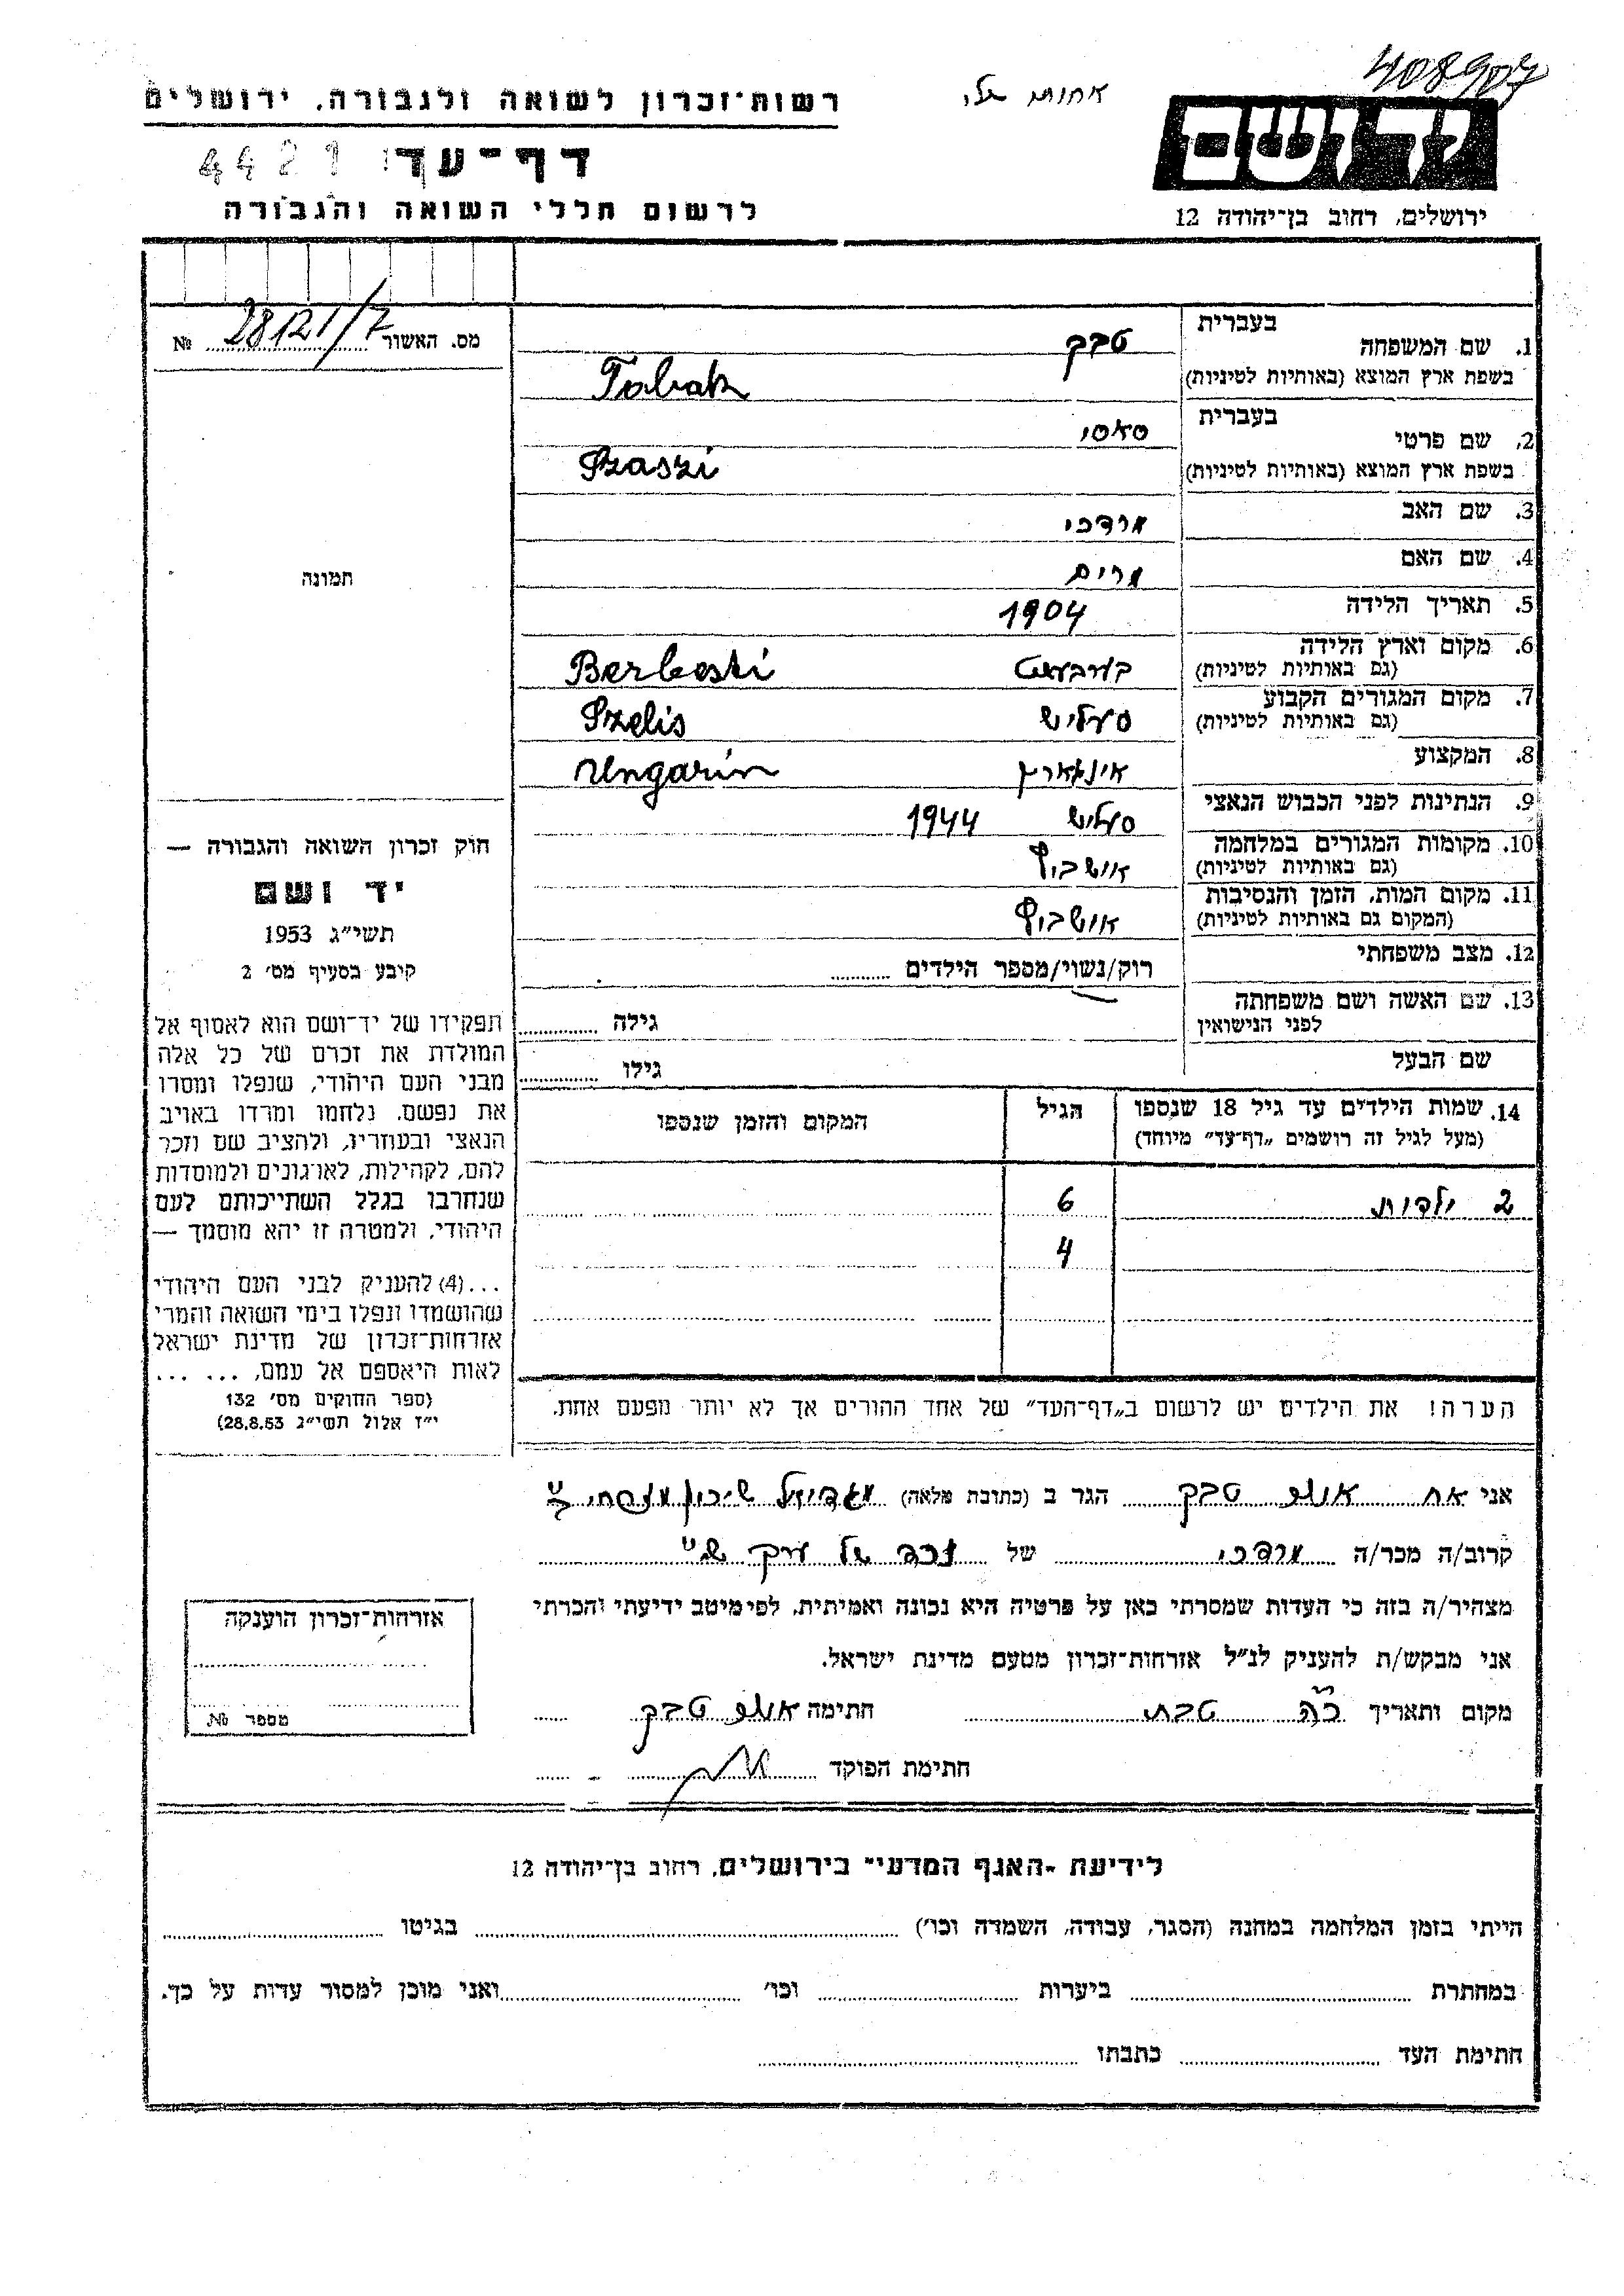 408907
אחות שלי
רשות־זכרון לשואה ולגבורה, ירושלים
יד ושם
דף־עד
4421
לרשום חללי השואה והגבורה
ירושלים, רחוב בן־יהודה 12
מס. האשור 28121/7 №
תמונה
חוק זכרון השואה והגבורה —
יד ושם
תשי״ג 1953
קיבע בסעיף מס׳ 2
תפקידו של יד־ושם הוא לאסוף אל
המולדת את זכרם של כל אלה
מבני העם היהודי, שנפלו ומסרו
את נפשם, נלחמו ומרדו באויב
הנאצי ובעוזריו, ולהציב שם וזכר
להם, לקהילות, לארגונים ולמוסדות
שנחרבו בגלל השתייכותם לעם
היהודי, ולמטרה זו יהא מוסמך —
...(4) להעניק לבני העם היהודי
שהושמדו ונפלו בימי השואה והמרי
אזרחות־זכרון של מדינת ישראל
לאות היאספם אל עמם, ... ...
(ספר החוקים מס׳ 132
י״ז אלול תשי״ג 28.8.53)
בעברית
1. שם המשפחה טבק
בשפת ארץ המוצא (באותיות לטיניות) Tabak
בעברית
2. שם פרטי סאסי
בשפת ארץ המוצא (באותיות לטיניות) Szaszi
3. שם האב מרדכי
4. שם האם מרים
5. תאריך הלידה 1904
6. מקום וארץ הלידה
(גם באותיות לטיניות) Berbesti
7. מקום המגורים הקבוע
(גם באותיות לטיניות) סעליש Szelis
8. המקצוע אינגארין Ungarin
9. הנתינות לפני הכבוש הנאצי סעליש 1944
10. מקומות המגורים במלחמה
(גם באותיות לטיניות) אושביץ
11. מקום המות, הזמן והנסיבות
(המקום גם באותיות לטיניות) אושביץ
12. מצב משפחתי רוק/נשוי/מספר הילדים
13. שם האשה ושם משפחתה
לפני הנישואין גילה
שם הבעל גילו
14. שמות הילדים עד גיל 18 שנספו הגיל המקום והזמן שנספו
(מעל לגיל זה רושמים „דף־עד״ מיוחד)
2 ילדות 6
4
הערה! את הילדים יש לרשום ב„דף־העד״ של אחד ההורים אך לא יותר מפעם אחת.
אני טבק הגר ב (כתובת מלאה) שיכון
קרוב/ה מכר/ה מרדכי של נכד של
מצהיר/ה בזה כי העדות שמסרתי כאן על פרטיה היא נכונה ואמיתית, לפי מיטב ידיעתי והכרתי
אני מבקש/ת להעניק לנ״ל אזרחות־זכרון מטעם מדינת ישראל.
מקום ותאריך כ״ה טבת חתימה טבק
חתימת הפוקד
אזרחות־זכרון הוענקה
מספר №
לידיעת ־האגף המדעי־ בירושלים, רחוב בן־יהודה 12
הייתי בזמן המלחמה במחנה (הסגר, עבודה, השמדה וכו׳) בגיטו
במחתרת ביערות וכו׳ ואני מוכן למסור עדות על כך.
חתימת העד כתבתו